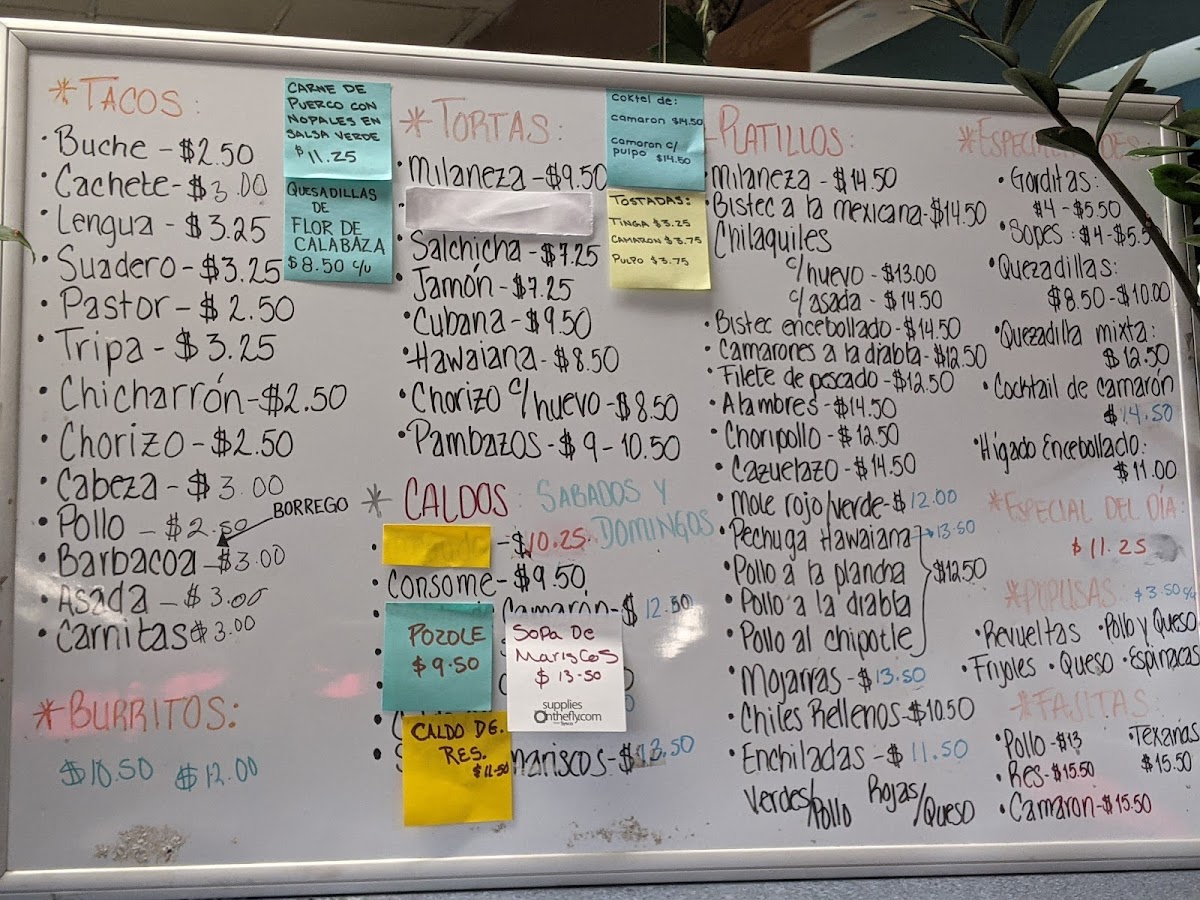 *TACOS:
• Buche - $2.50
• Cachete - $3.00
• Lengua - $3.25
• Suadero - $3.25
• Pastor - $2.50
• Tripa - $3.25
• Chicharrón - $2.50
• Chorizo - $2.50
• Cabeza - $3.00
• Pollo - $2.50
BORREGO
• Barbacoa - $3.00
• Asada - $3.00
• Carnitas $3.00
*BURRITOS:
$10.50 $12.00
CARNE DE
PUERCO CON
NOPALES EN
SALSA VERDE
$11.25
QUESADILLAS
DE
FLOR DE
CALABAZA
$8.50 c/u
*TORTAS:
• Milaneza - $9.50
• Salchicha - $7.25
• Jamón - $7.25
• Cubana - $9.50
• Hawaiana - $8.50
• Chorizo c/huevo - $8.50
• Pambazos - $9 - 10.50
* CALDOS: SABADOS Y
DOMINGOS
- $10.25
Consome - $9.50
Camarón - $12.50
POZOLE
$9.50
SOPA DE
MARISCOS
$13.50
supplies
Onthefly.com
CALDO DE.
RES.
$11.50
mariscos - $13.50
Coktel de:
Camaron $14.50
Camaron c/
pulpo $14.50
TOSTADAS:
TINGA $3.25
CAMARON $3.75
PULPO $3.75
PLATILLOS:
• Milaneza - $14.50
• Bistec a la mexicana - $14.50
Chilaquiles
c/huevo - $13.00
c/asada - $14.50
• Bistec encebollado - $14.50
• Camarones a la diabla - $12.50
• Filete de pescado - $12.50
• Alambres - $14.50
• Choripollo - $12.50
• Cazuelazo - $14.50
• Mole rojo/verde - $12.00
• Pechuga Hawaiana 13.50
• Pollo a la plancha $12.50
• Pollo a la diabla
• Pollo al chipotle
• Mojarras - $13.50
• Chiles Rellenos - $10.50
• Enchiladas - $11.50
Verdes/Pollo Rojas/Queso
*ESPECIALIDADES:
• Gorditas:
$4 - $5.50
• Sopes: $4 - $5.5
• Quezadillas:
$8.50 - $10.00
• Quezadilla mixta:
$12.50
• Cocktail de camarón
$14.50
• Hígado Encebollado:
$11.00
*ESPECIAL DEL DÍA:
$11.25
*PUPUSAS: $3.50 c/u
• Revueltas • Pollo y Queso
• Frijoles • Queso • Espinacas
*FAJITAS:
• Pollo - $13 • Texanas
• Res - $15.50 $15.50
• Camaron - $15.50